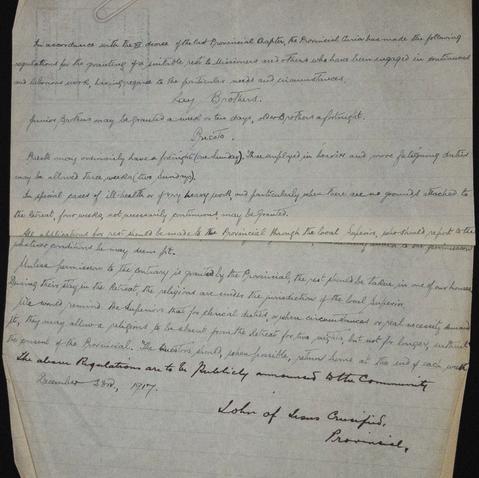 In accordance with the VI decree of the last Provincial Chapter, the Provincial Curia has made the following
regulations for the granting of a suitable rest to Missioners and others who have been engaged in continuous
and laborious work, having regard to the particular needs and circumstances.
Lay Brothers.
Junior Brothers may be granted a week or ten days, older Brothers a fortnight.
Priests.
Priests may ordinarily have a fortnight (one Sunday). Those employed in heavier and more fatiguing duties
may be allowed three weeks (two Sundays).
In special cases of ill-health or of very heavy work, and particularly when there are no grounds attached to
the Retreat, four weeks, not necessarily continuous, may be granted.
All applications for rest should be made to the Provincial through the local Superior, who should report to the
conditions he may deem fit.
Unless permission to the contrary is granted by the Provincial, the rest should be taken in one of our houses.
During their stay in the Retreat, the religious are under the jurisdiction of the local Superior.
We would remind the Superiors that for clerical duties, or where circumstances or real necessity demand
it, they may allow a religious to be absent from the Retreat for two nights, but not for longer, without
the consent of the Provincial. The Questors should, when possible, return home at the end of each week.
The above Regulations are to be Publicly announced to the Community
December 23rd, 1917.
John of Jesus Crucified,
Provincial.